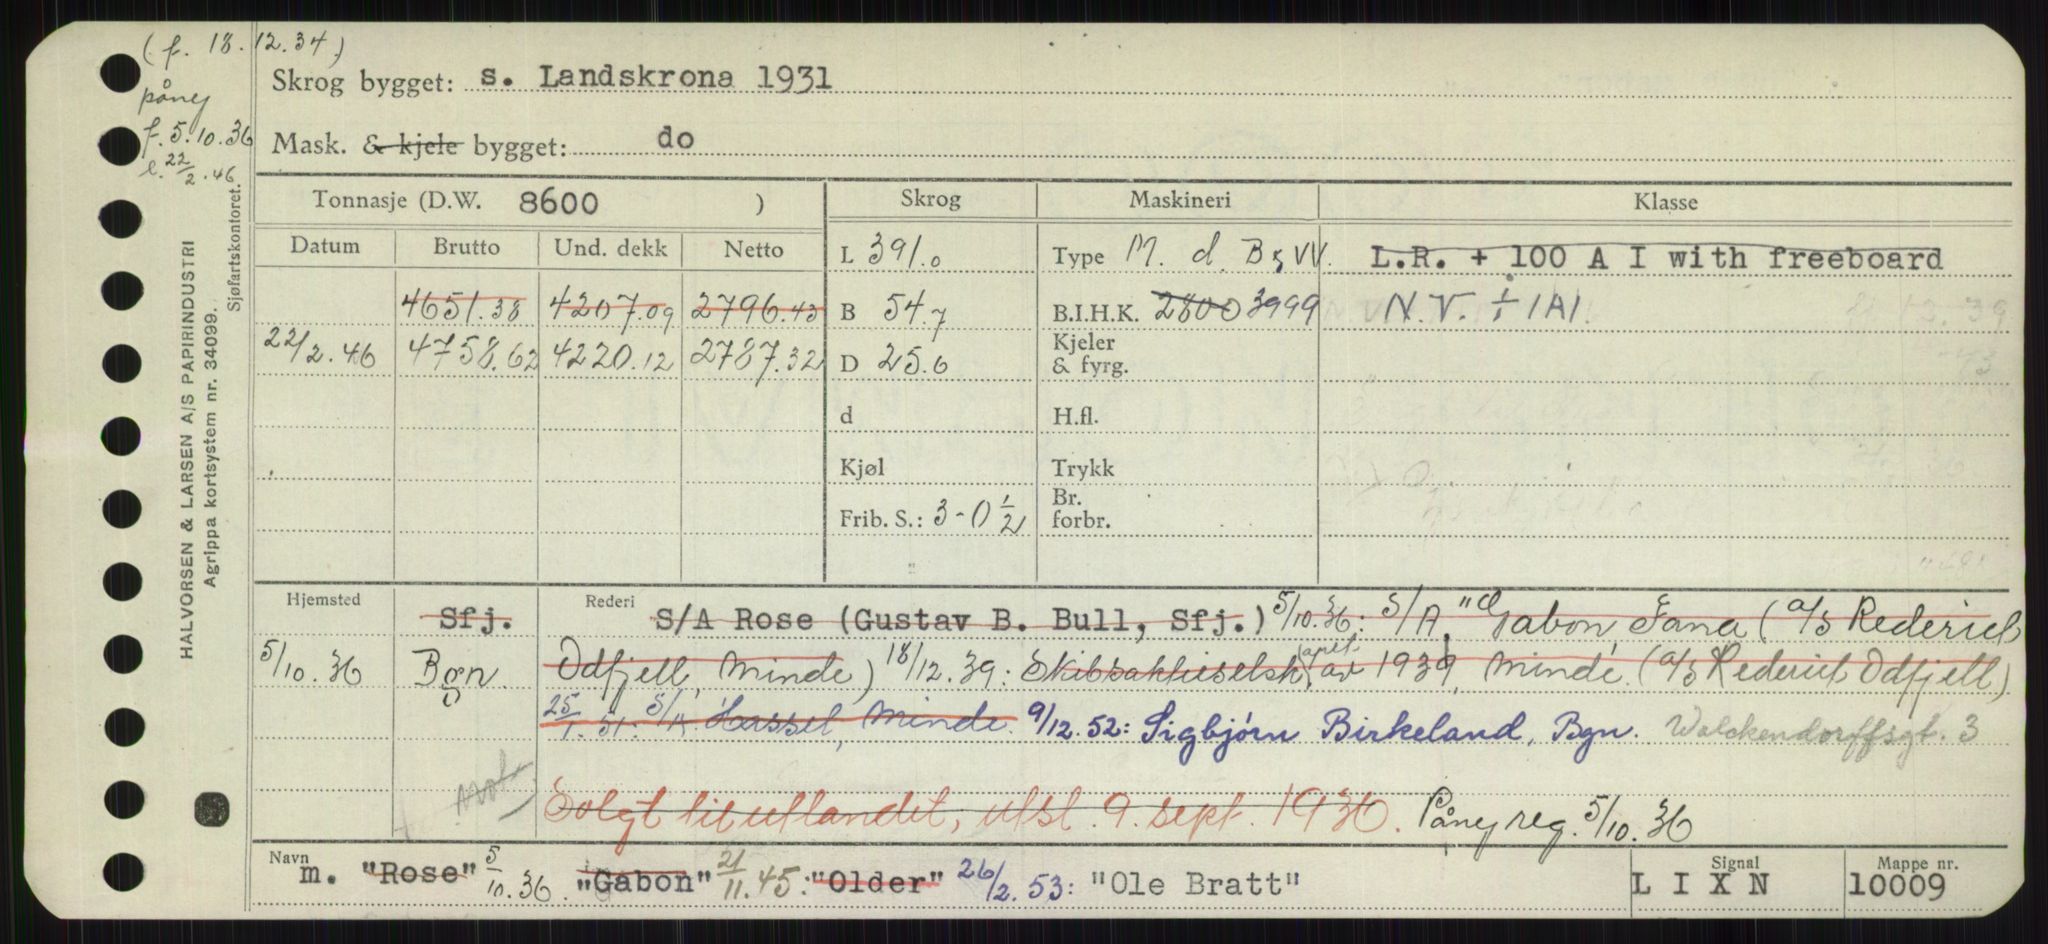 (f. 18.12.34)
påny
f. 5.10.36
l. 22/2.46
Skrog bygget: s. Landskrona 1931
Mask. & kjele bygget: do
Tonnasje (D.W. 8600 ) Skrog Maskineri Klasse
Datum Brutto Und. dekk Netto L 391.0 Type M. d. B & W. L.R. + 100 A I with freeboard
4651.38 4207.09 2796.43 B 54.7 B.I.H.K. 2800 3999 N.V. + 1A1.
22/2.46 4758.62 4220.12 2787.32 D 25.6 Kjeler & fyrg.
d H.fl.
Kjøl Trykk
Frib. S.: 3-0 1/2 Br. forbr.
Hjemsted Sfj. Rederi S/A Rose (Gustav B. Bull, Sfj.) 5/10.36: S/A "Gabon, Fana (A/S Rederiet
5/10.36 Bgn. Odfjell, Minde) 18/12.39: Skibsaktieselsk. av 1939, Minde. (A/S Rederiet Odfjell)
25/1.51: S/A Hassel, Minde. 9/12.52: Sigbjørn Birkeland, Bgn. Walckendorffsgt. 3
mot
Solgt til utlandet, utsl. 9. sept. 1936. Påny reg. 5/10.36
Navn m. "Rose" 5/10.36. "Gabon" 21/11.45: "Older" 26/2.53: "Ole Bratt" Signal L I X N Mappe nr. 10009
HALVORSEN & LARSEN A/S PAPIRINDUSTRI
Agrippa kortsystem nr. 34099.
Sjøfartskontoret.